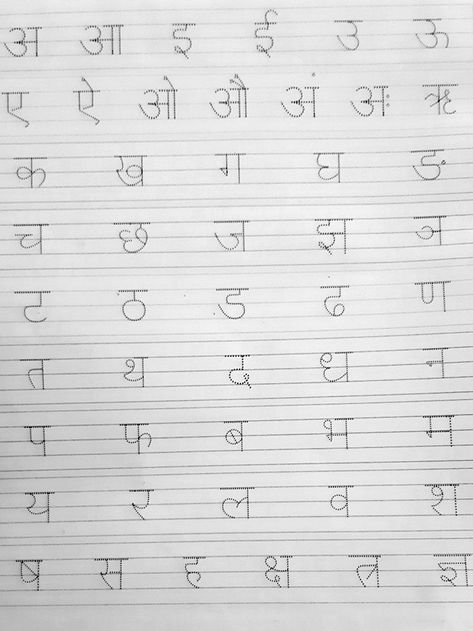 अ आ इ ई उ ऊ
ए ऐ ओ औ अं अः ऋ
क ख ग घ ङ
च छ ज झ ञ
ट ठ ड ढ ण
त थ द ध न
प फ ब भ म
य र ल व श
ष स ह क्ष त्र ज्ञ